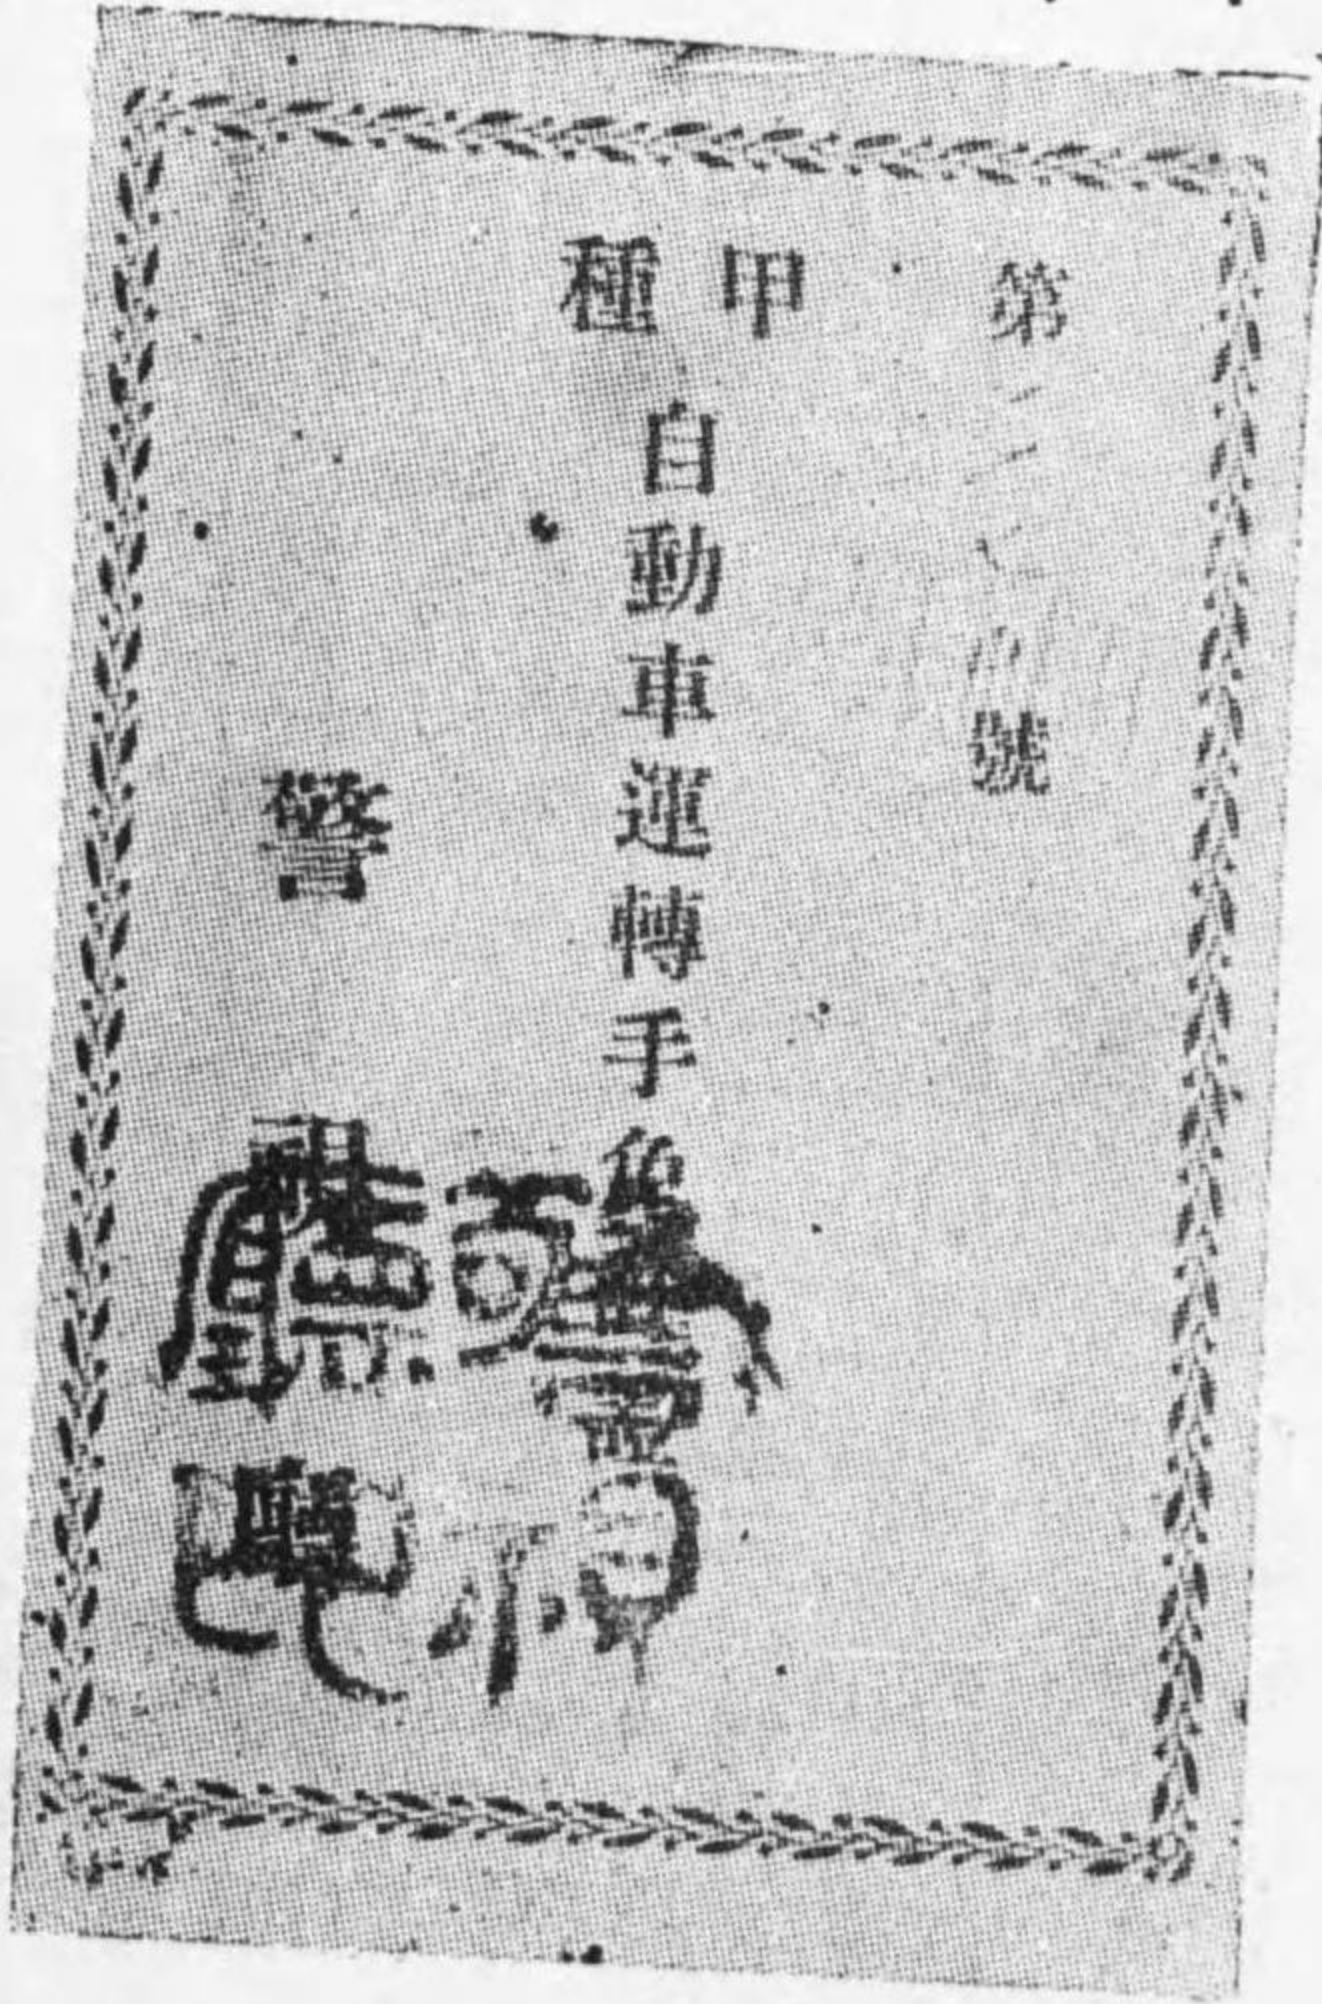 第號
甲種
自動車運轉手免許證
警視廳